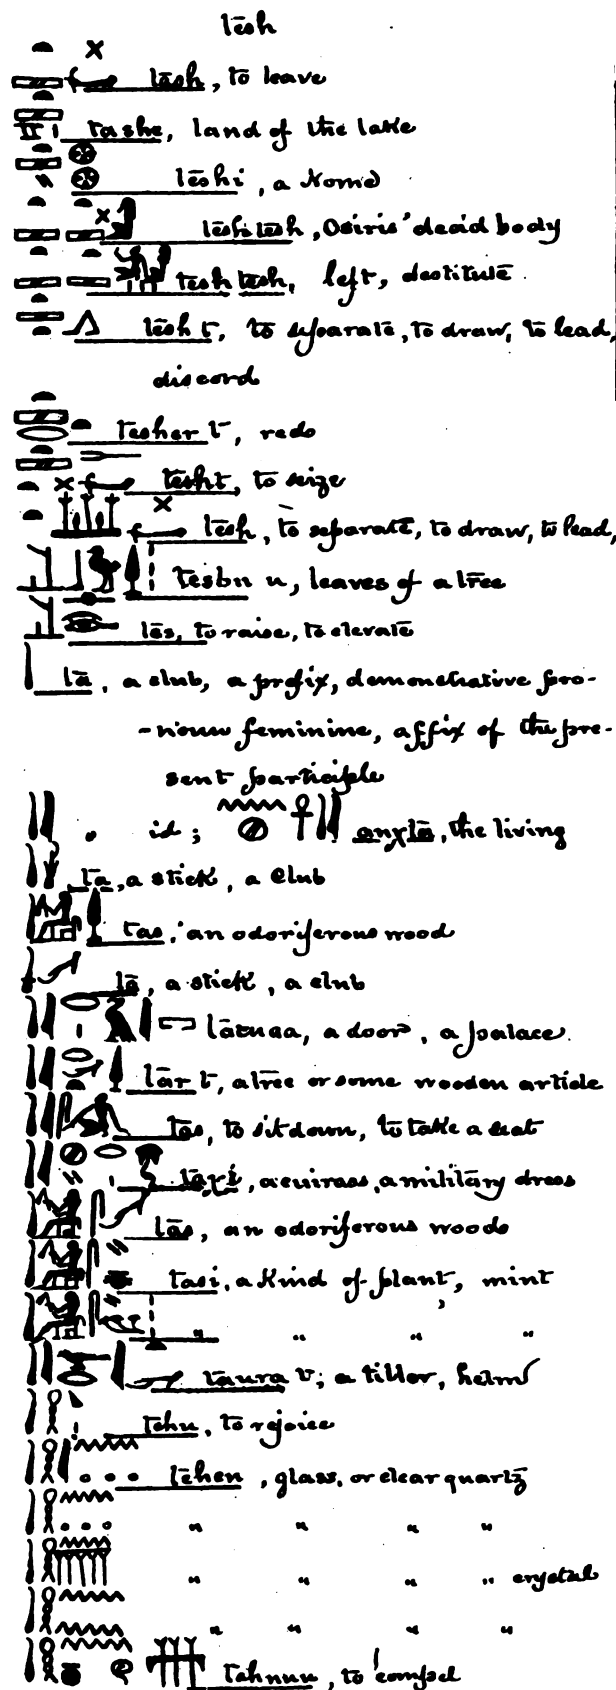 tesh
tesh, to leave
tashe, land of the lake
teshi, a Nome
teshtesh, Osiris' dead body
teshtesh, left, destitute
tesh t, to separate, to draw, to lead,
discord
tesher t, redo
tesht, to seize
tesh, to separate, to draw, to lead,
tesbu u, leaves of a tree
tes, to raise, to elevate
ta, a club, a prefix, demonstrative pro-
-noun feminine, affix of the pre-
sent participle
" id; anχta, the living
ta, a stick, a club
tas, an odoriferous wood
ta, a stick, a club
a door, a palace.
tar t, a tree or some wooden article
tas, to sit down, to take a seat
taχi, a cuirass, a military dress
tas, an odoriferous woods
tasi, a kind of plant, mint
" " " "
taura t; a tiller, helm
tehu, to rejoice
tehen, glass, or clear quartz
" " " "
" " " " crystal
" " " "
tahnnu, to compel